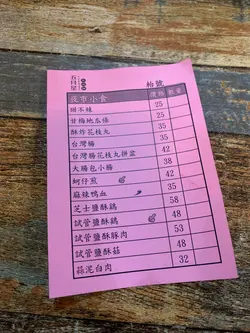 五月星
枱號
夜市小食 價錢 數量
甜不辣 25
甘梅地瓜條 25
酥炸花枝丸 35
台灣腸 35
台灣腸花枝丸拼盆 42
大腸包小腸 38
蚵仔煎 42
麻辣鴨血 35
芝士鹽酥鷄 58
試管鹽酥鷄 48
試管鹽酥豚肉 53
試管鹽酥菇 48
蒜泥白肉 32